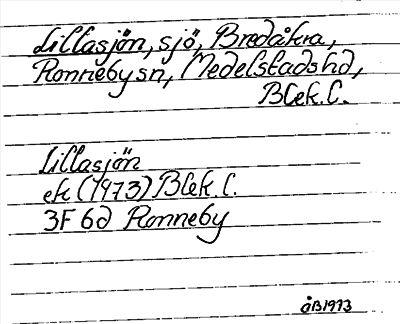 Lillasjön, sjö, Bredåkra,
Ronneby sn, Medelstads hd,
Blek. l.
Lillasjön
ek (1973) Blek. l.
3F 6d Ronneby
ÅB 1973